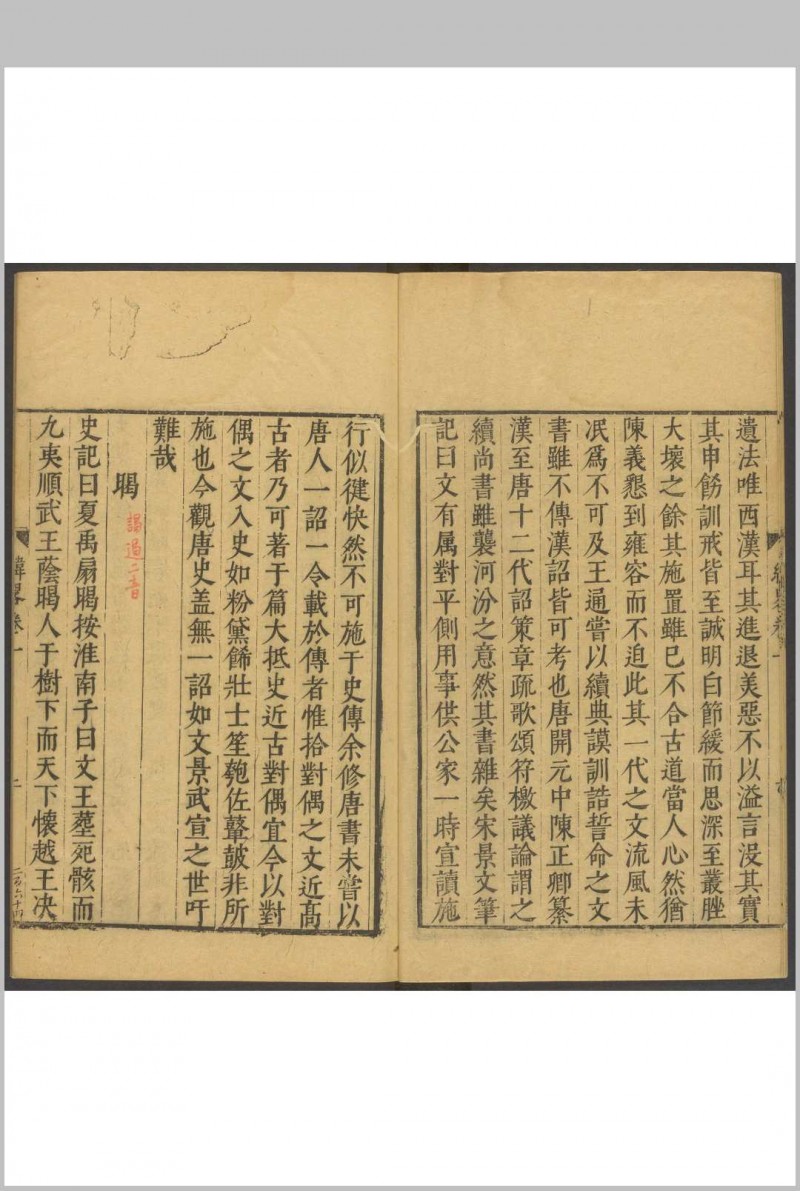 遺法唯西漢耳其進退美惡不以溢言沒其實
其申飭訓戒皆至誠明白節緩而思深至叢脞
大壞之餘其施置雖已不合古道當人心然猶
陳義懇到雍容而不迫此其一代之文流風未
泯爲不可及王通嘗以續典謨訓誥誓命之文
書雖不傳漢詔皆可考也唐開元中陳正卿纂
漢至唐十二代詔策章疏歌頌符檄議論謂之
續尚書雖襲河汾之意然其書雜矣宋景文筆
記曰文有属對平側用事供公家一時宣讀施
行似徤快然不可施于史傳余修唐書未嘗以
唐人一詔一令載於傳者惟拾對偶之文近髙
古者乃可著于篇大抵史近古對偶宜今以對
偶之文入史如粉黛餙壯士笙匏佐鼙皷非所
施也今觀唐史盖無一詔如文景武宣之世吁
難哉
暍
謁過二音
史記曰夏禹扇暍按淮南子曰文王塟死骸而
九夷順武王蔭暍人于樹下而天下懷越王决
緯畧卷一
二
二百六十四